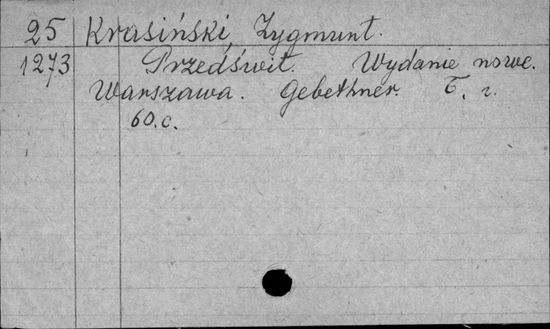 25 Krasiński Zygmunt.
1273 Przedświt. Wydanie nowe.
Warszawa. Gebethner. r.
60.c.